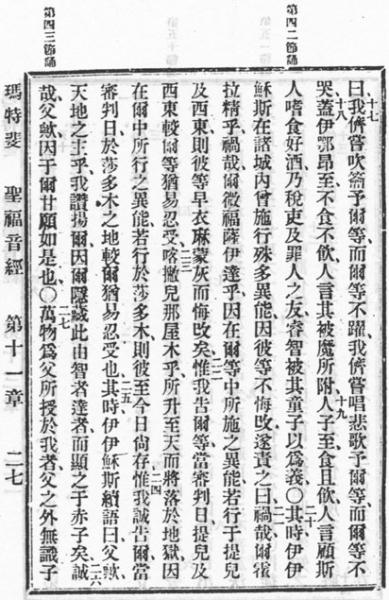 第四二節誦
十七
曰我儕嘗吹籥予爾等、而爾等不躍、我儕嘗唱悲歌予爾等、而爾等不
十八 十九
哭、蓋伊鄂昂至、不食不飲、人言其被魔所附、人子至、食且飲、人言、顧斯
二十
人嗜食好酒、乃稅吏及罪人之友、睿智被其童子以爲義〇其時伊伊
穌斯在諸城內、曾施行殊多異能、因彼等不悔改、遂責之曰、禍哉爾
拉精乎、禍哉爾微福薩伊達乎、因在爾等中所施之異能、若行于提兒
二二
及西東、則彼等早衣麻蒙灰而悔改矣、惟我告爾等、當審判日、提兒及
二三
西東、較爾等猶易忍受、喀撇兒那屋木乎、所升至天、而將落於地獄、因
二四
在爾中所行之異能、若行於莎多木、則彼至今日尙存、惟我誠告爾、當
二五
審判日、於莎多木之地、較爾猶易忍受也、其時伊伊穌斯續語曰、父歟、
二六
天地之主乎、我讚揚爾、因爾隱誠此由智者達者、而顯之于赤子矣、誠
二七
哉父歟、因于爾甘願如是也〇萬物爲父所授於我者、父之外無識子
第四三節誦
瑪特斐 聖福音經 第十一章 二七